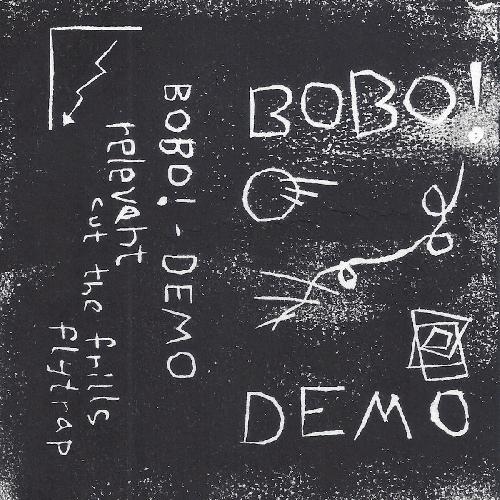 BOBO!
DEMO
BOBO! - DEMO
relevant
cut the frills
flytrap